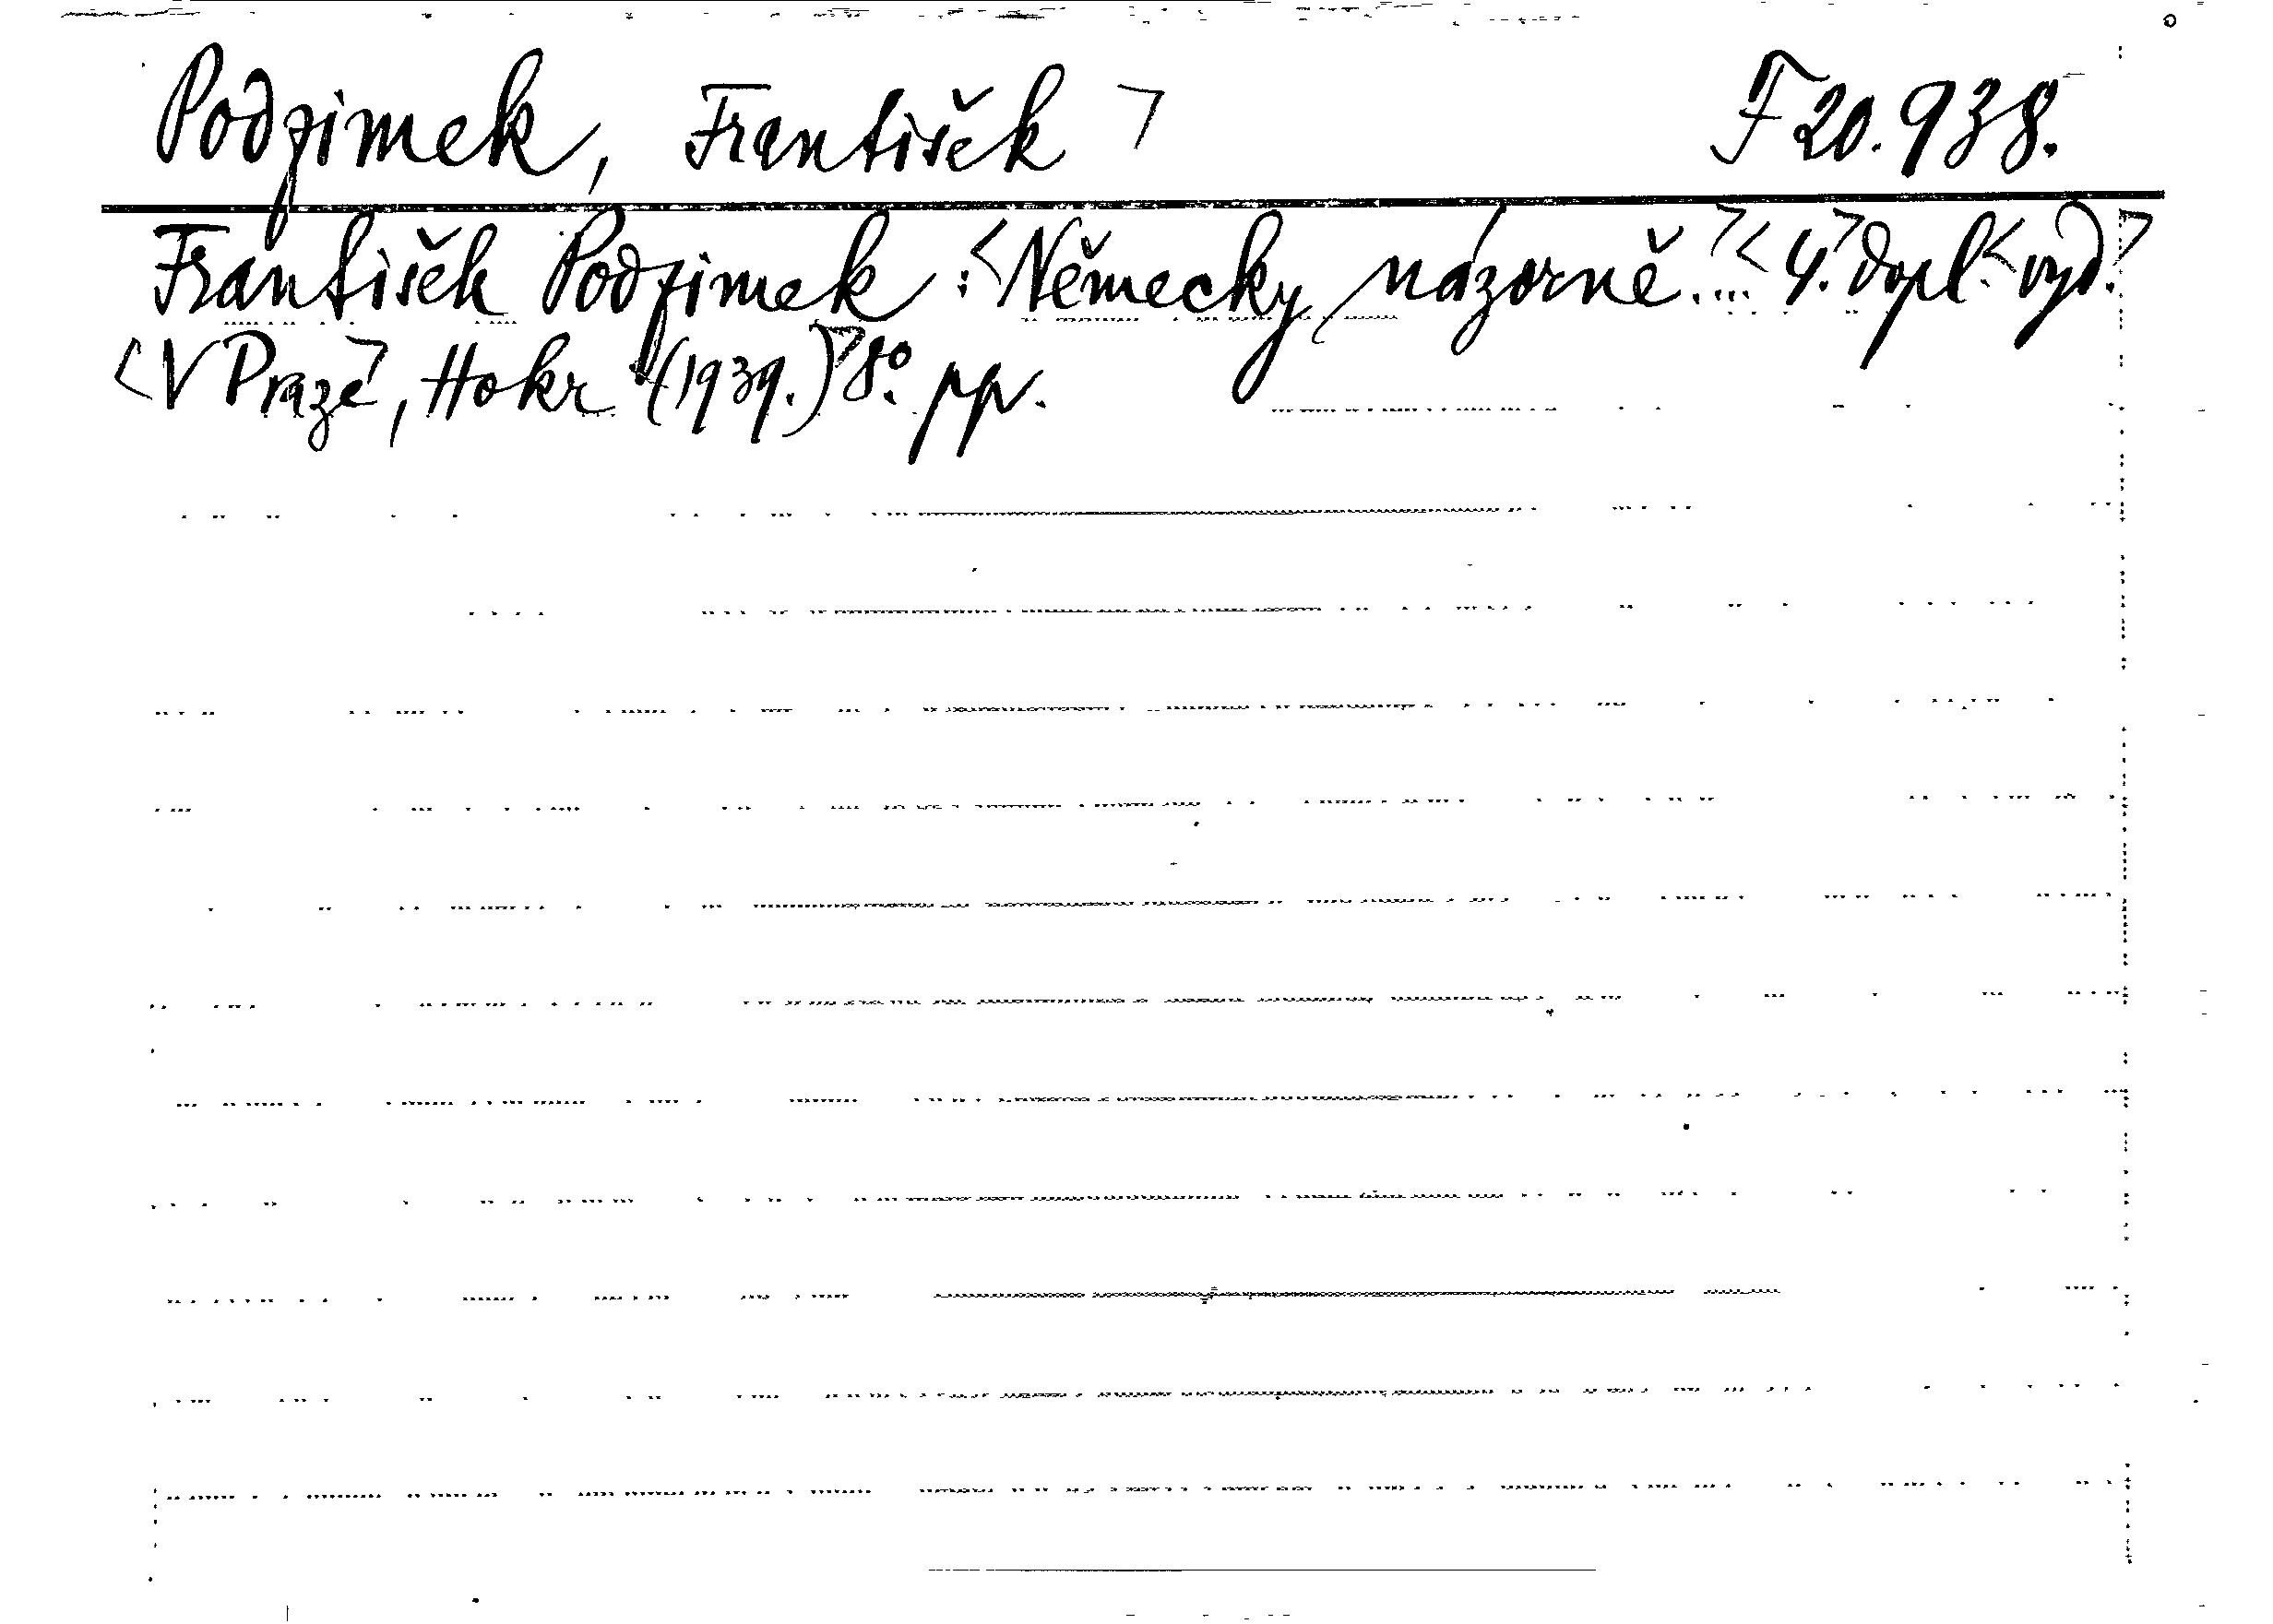 Podzimek, František > F 20.938.
František Podzimek: <Německy názorně...> <4.> dopl. <vyd.>
<V Praze>, Hokr (1939.)> 8°. pp.